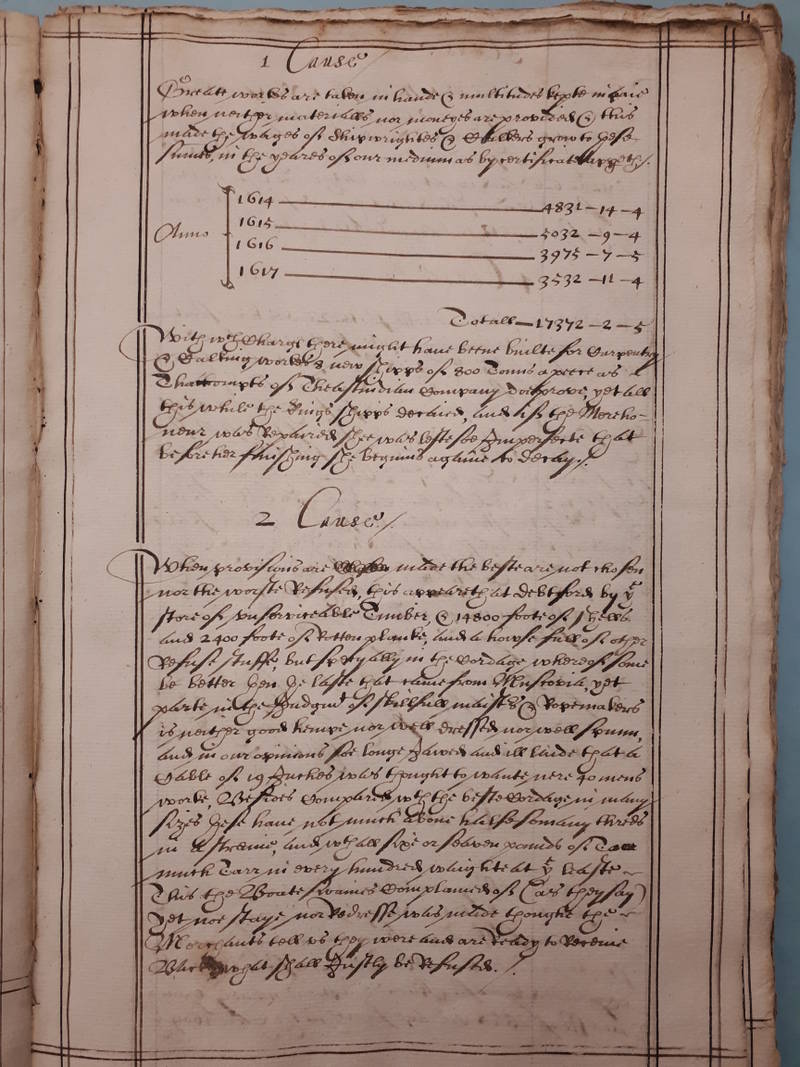 1 Cause
Greate works are taken in hande & multitudes kepte in paie
when neither materialls nor moneyes are provided & this
made the wages of Shipwrightes & Calkers grow to these
summs, in the yeares of our medium as by certificate appeth /.
Anno
1614 4831 - 14 - 4
1615 5032 - 9 - 4
1616 3975 - 7 - 5
1617 3532 - 11 - 4
Totall - 17372 - 2 - 5
With wch Charge there might have beene builte for Carpentry
& Calking workes 8 new shipps of 800 Tonns a peece as
Thaccompts of Theastindian Company doe prove, yet all
this while the kings shipps decaied, and if the Merho-
neur was Repaired shee was lefte soe Imperfecte that
before her finishing she beginns againe to decay /.
2 Cause /.
When provisions are made the beste are not chosen
nor the worste Refused, this appeareth at Debtford by ye
store of unserviceable Timber, & 14800 foote of shells
and 2400 foote of Rotten planke, and a howse full of other
Refuse stuffe, but specyally in the Cordage whereof some
be better then the laste that came from Muscovia, yet
parte in the Judgmt of skilfull maisters & Ropemakers
is neither good hempe nor well dressed nor well spunn,
and in our opinions soe longe and ill laide that a
Cable of 19 Inches was thought to wante nere 40 mens
worke, Besides Compared wth the beste Cordage in many
sizes these have not much above halfe so many threds
in a streame, and wthall sixe or seaven pounds of Too
much Tarr in every hundred waighte at ye leaste
This the Boateswaines Complained of (as they say)
yet noe staye nor Redresse was made thoughe the
Merchants tell us they were and are Ready to Receive
Back what shall Justly be Refused. /.